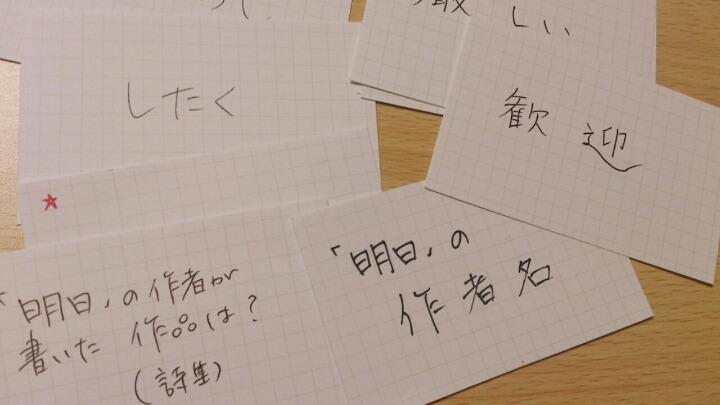 しい
したく
歓迎
「明日」の作者が
書いた作品は?
(詩集)
「明日」の
作者名